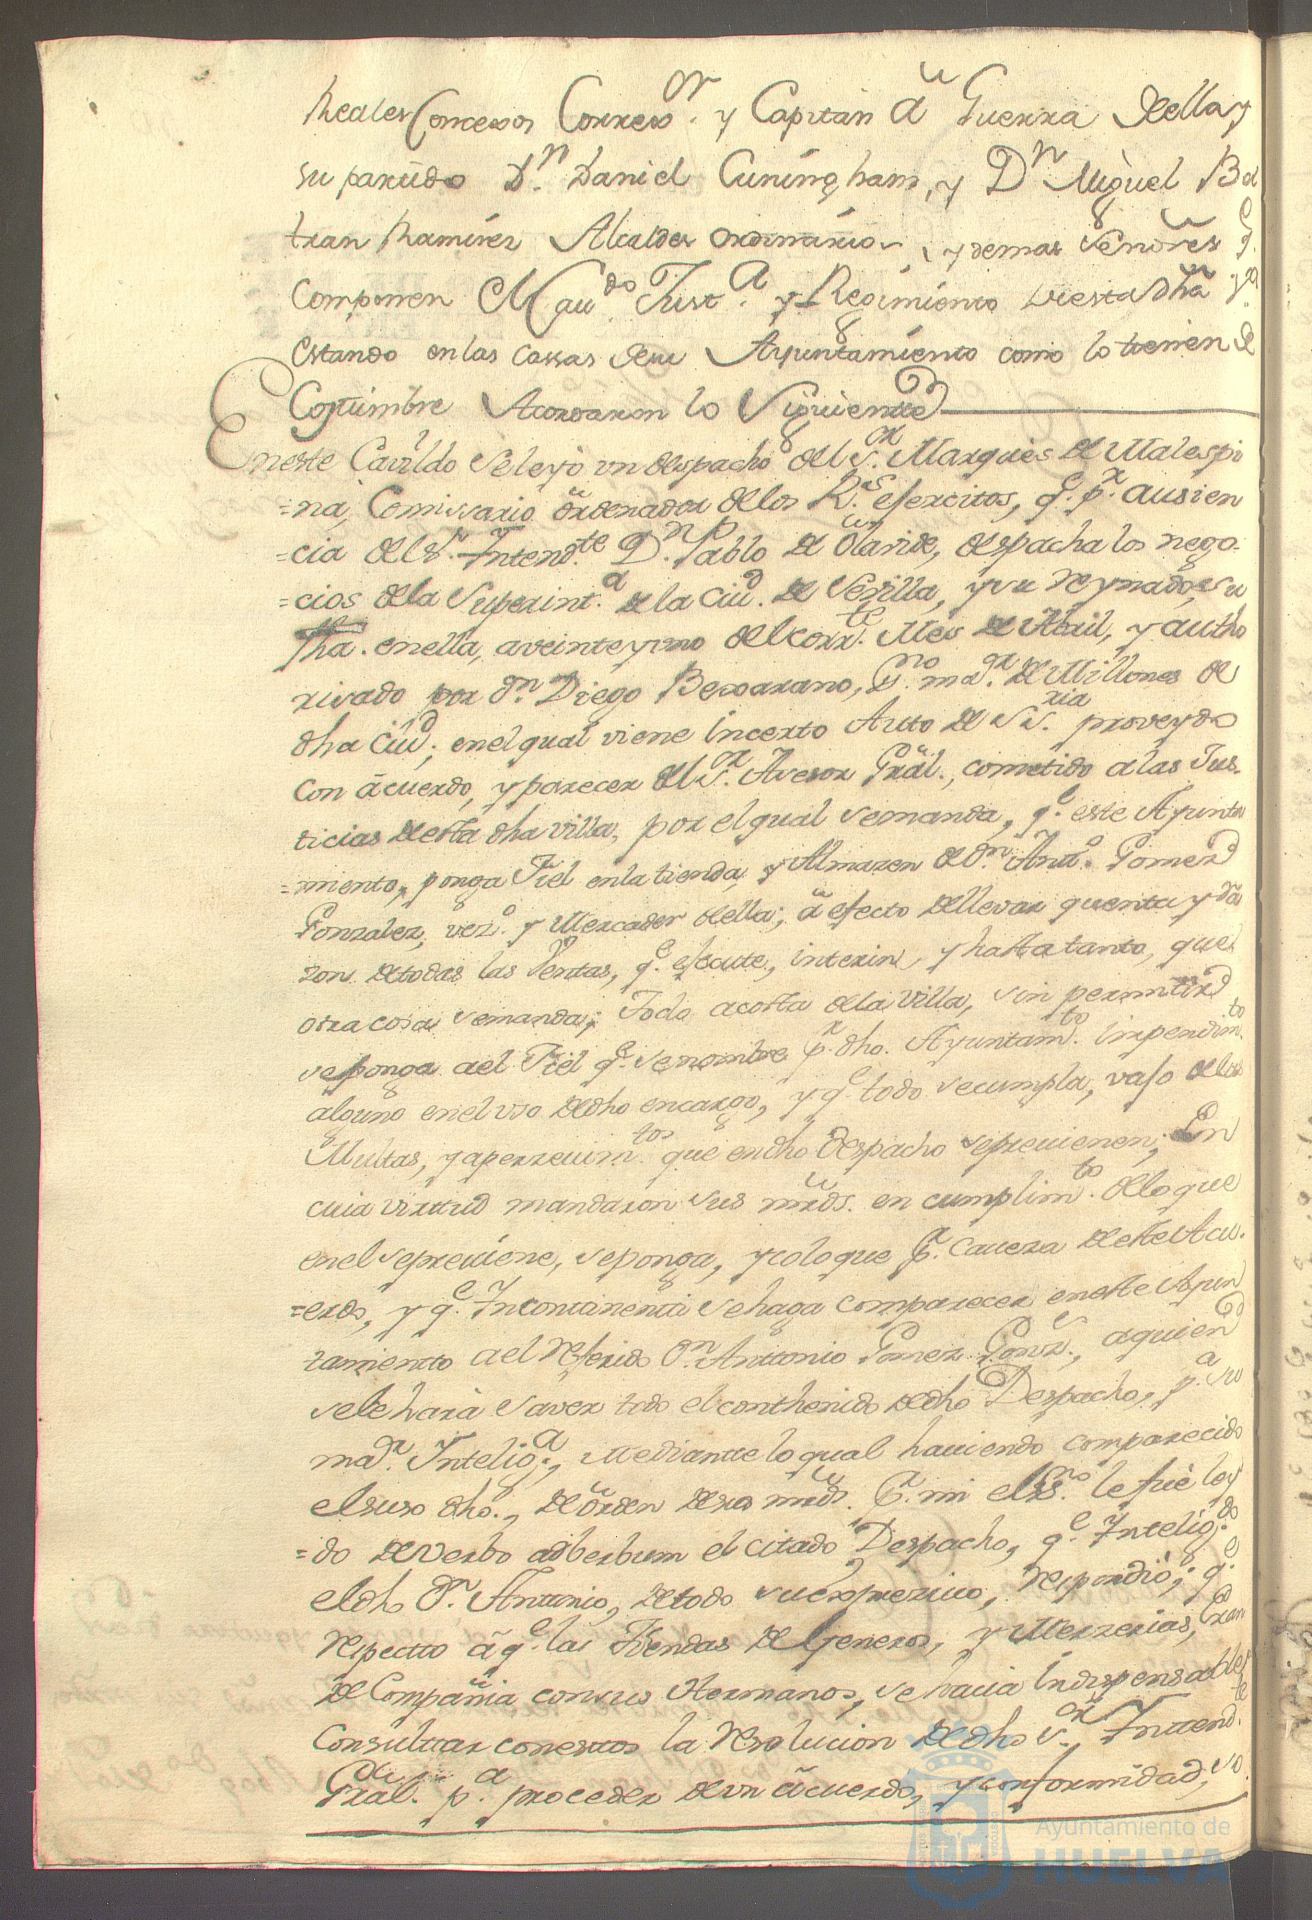 Reales Consejos Correxor. y Capitan â Guerra della y
su partido Dn. Daniel Cuningham, y Dn Miguel Bel
tran Ramirez Alcaldes ordinarios, y demas Señores q.
componen el Cavdo Justa. y Regimiento de esta dha va.
estando en las cassas de su Ayuntamiento como lo tienen de
Costumbre Acordaron lo Siguiente
En este Cavildo se leyó un despacho del Sr. Marques de Malespi
=na, Comissario ôrdenador de los Rs. exercitos, qe. pr. ausien
=cia del Sr. Intendte Dn. Pablo de Olavide, despacha los nego-
=cios de la Superinta. de la Ciud. de Sevilla, y su Reynado, su
fha. en ella, a veinte y uno del corrte. Mes de Abril, y autho
rizado por dn. Diego Bexarano, Esno. mar. de Millones de
dha Ciud; en el qual viene incerto Auto de SSria. proveydo
con âcuerdo, y parecer del Sr. Asesor Gral., cometido a las Jus-
ticias de esta dha villa, por el qual se manda, qe. este Ayunta
=miento, ponga Fiel en la tienda, y Almazen de Dn. Anto. Gomez
Gonzalez, vezo. y Mercader della; â efecto de llevar quenta y ra
zon de todas las Ventas, qe. execute, interin, y hasta tanto, que
otra cosa se manda; Todo a costa de la Villa, sin permitir
se ponga a el Fiel qe. se nombre pr. dho. Ayuntamto. impedimto.
alguno en el uso de dho encargo, y qe. todo se cumpla, vajo de las
Multas, y aperzevimtos. que en dho Despacho se previenen; En
cuia virtud mandaron sus mrds. en cumplimto. de lo que
en el se previene, se ponga, y coloque pr. caveza de este Acu-
=erdo, y qe. Incontinenti se haga comparecer en este Ayun
tamiento a el referido Dn. Antonio Gomez Gonz., a quien
se le hará saver todo el conthenido de dho Despacho, pa. su
mar. Inteliga., Mediante lo qual haviendo comparecido
el suso dho., de ôrden de sus mrds. Pr. mi el Esno. le fue ley
=do de verbo adberbum el citado Despacho, qe. Inteligdo.
el dho Dn. Antonio, de todo su expresivo, respondió; qe.
respecto â qe. las Tiendas de Generos, y Merzerias, Eran
de Compañia con sus Hermanos, se hacia Indispensable
Consultar con estos la resolucion de dho Sr. Intendte.
Gral. pa. proceder de un âcuerdo, y conformidad, so
Ayuntamiento de
HUELVA